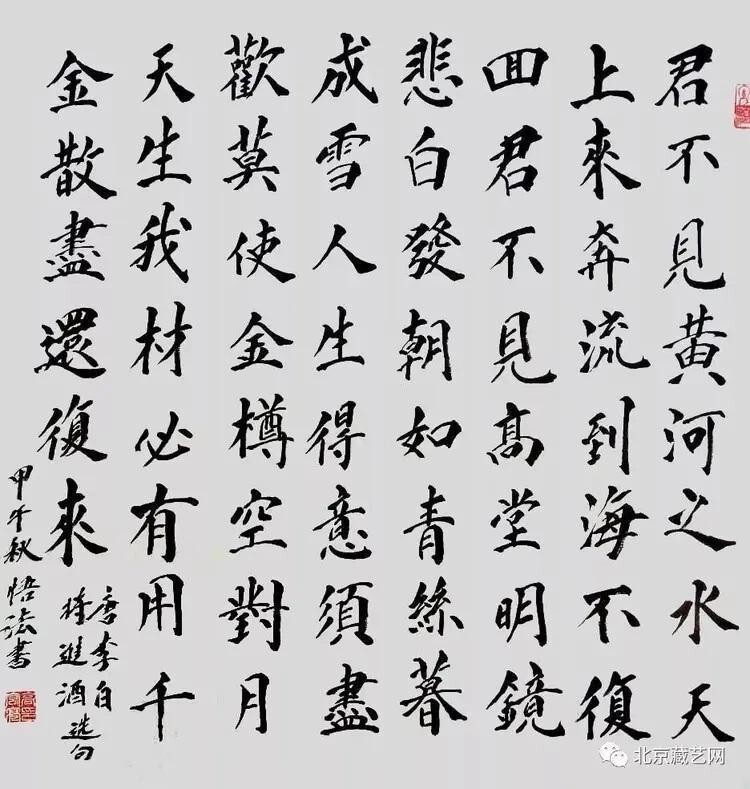 君不見黃河之水天
上來奔流到海不復
回君不見高堂明鏡
悲白發朝如青絲暮
成雪人生得意須盡
歡莫使金樽空對月
天生我材必有用千
金散盡還復來
唐李白
將進酒選句
甲午秋悟法書
北京藏艺网